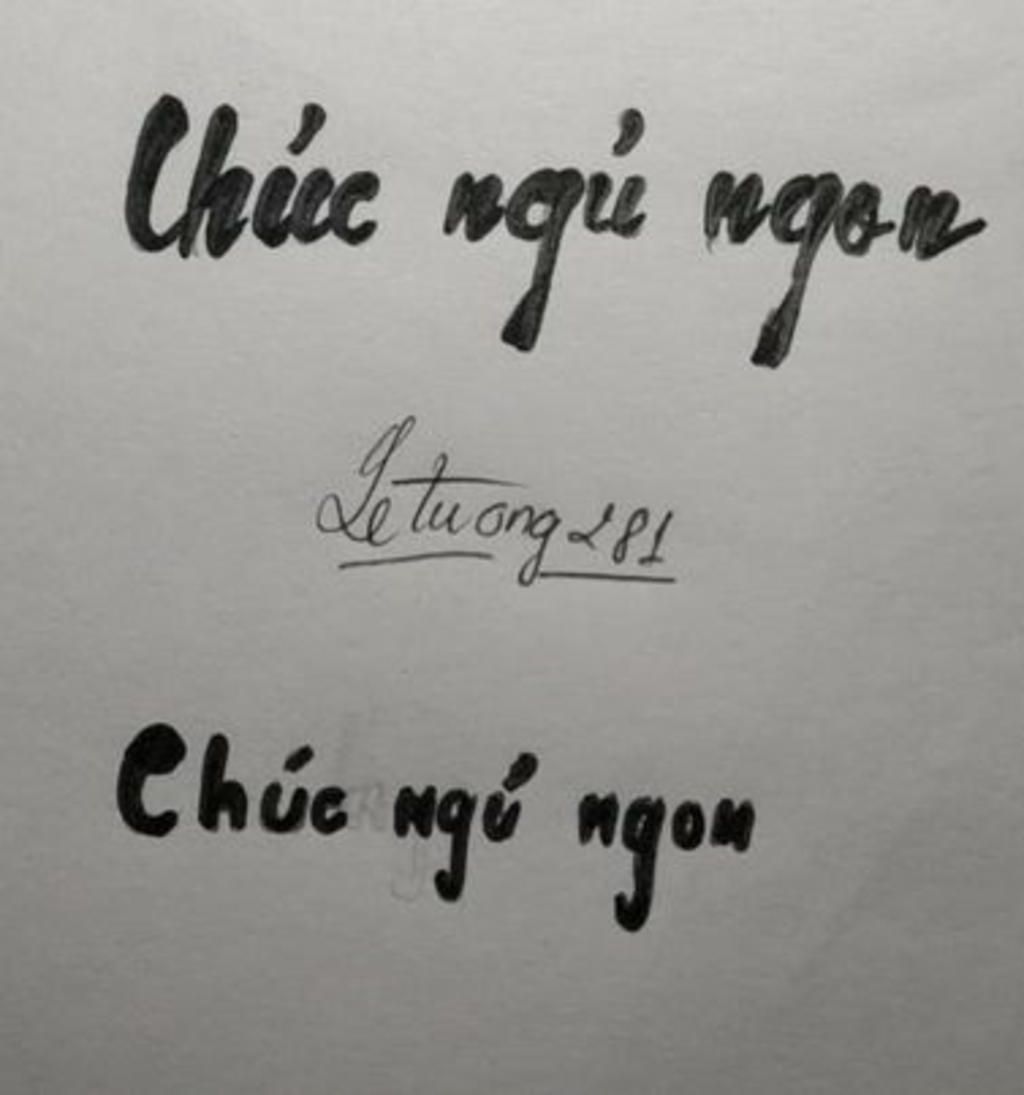 Chúc ngủ ngon
Letuong281
Chúc ngủ ngon